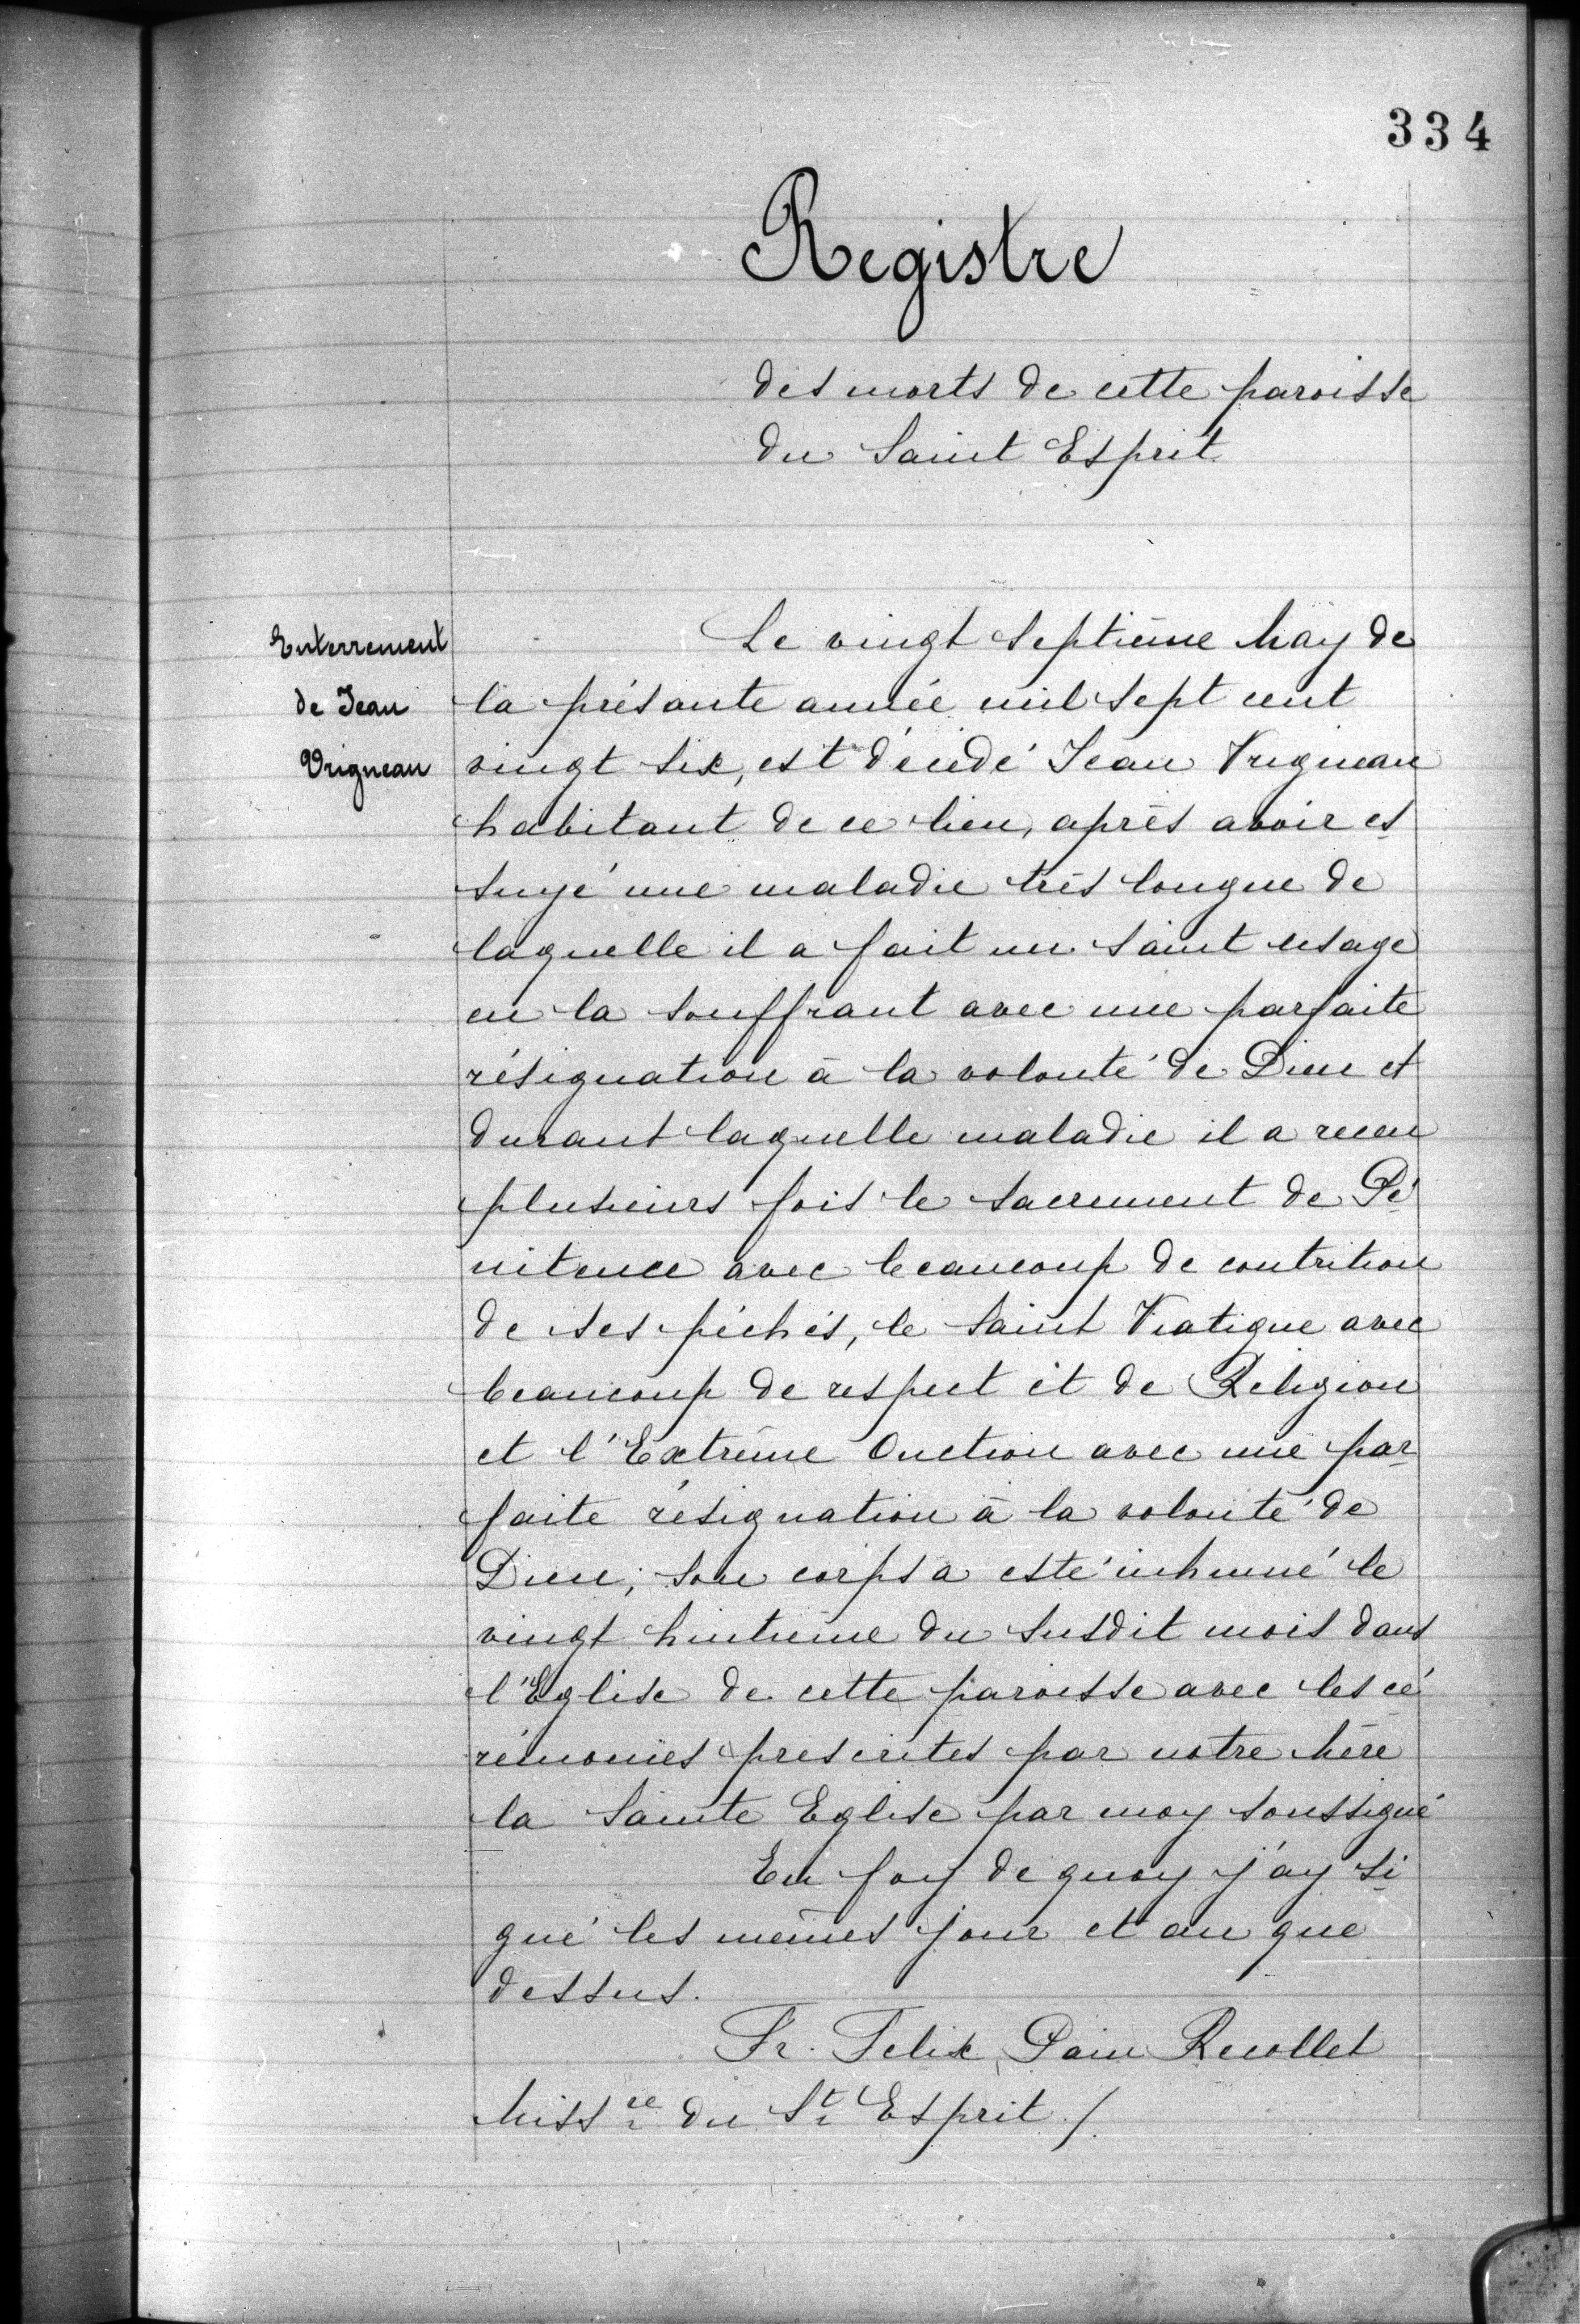 334
Registre
des morts de cette paroisse
du Saint Esprit
Enterrement
de Jean
Vrigneau
Le vingt septième May de
la présante année mil sept cent
vingt six, est décédé Jean Vrigneau
habitant de ce lieu, après avoir es
suyé une maladie très longue de
laquelle il a fait un saint usage
en la souffrant avec une parfaite
résignation à la volonté de Dieu et
durant laquelle maladie il a receu
plusieurs fois le sacrement de Pé
nitence avec beaucoup de contrition
de ses péchés, le Saint Viatique avec
beaucoup de respect et de Religion
et l'Extrême Onction avec une par
faite résignation à la volonté de
Dieu; son corps a esté inhumé le
vingt huitième du susdit mois dans
l'Eglise de cette paroisse avec les cé
rémonies prescrites par notre Mère
la Sainte Eglise par moy soussigné
En foy de quoy j'ay si
gné les mêmes jour et an que
dessus.
Fr. Felix Pain Recollet
Missre du St Esprit /.